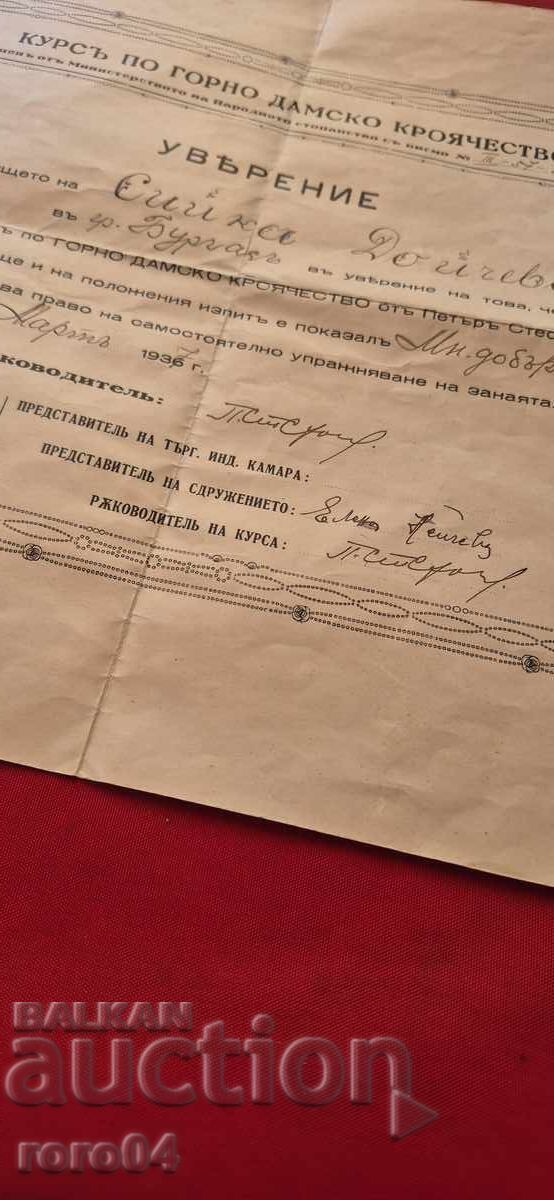 КУРСЪ ПО ГОРНО ДАМСКО КРОЯЧЕСТВО
отъ Министерството на Народното стопанство съ писмо №
УВѢРЕНИЕ
щето на Сийка Дойчева
въ гр. Бургасъ въ уверение на това, че
ъ по ГОРНО ДАМСКО КРОЯЧЕСТВО отъ Петъръ Стес
ще и на положения изпитъ е показалъ Мн. добър
ва право на самостоятелно упражняване на занаята.
Мартъ 1937 г.
ководитель:
ПРЕДСТАВИТЕЛЬ НА ТЪРГ. ИНД. КАМАРА:
ПРЕДСТАВИТЕЛЬ НА СДРУЖЕНИЕТО:
РѪКОВОДИТЕЛЬ НА КУРСА:
BALKAN
auction
roro04